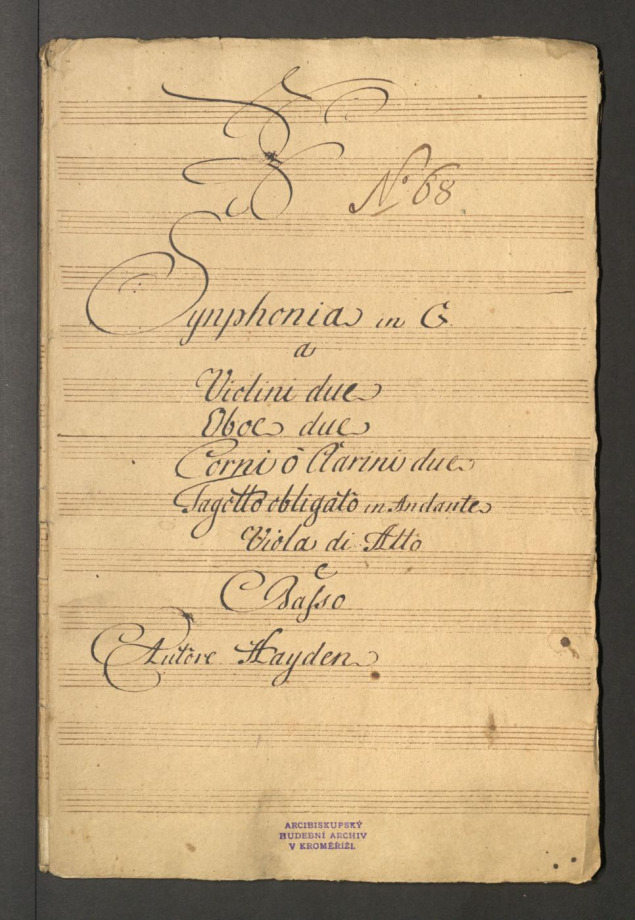 No. 68
Synphonia in G
a
Violini due
Oboe due
Corni ô Clarini due
Fagotto obligato in Andante
Viola di Alto
e
Basso
Autore Hayden
ARCIBISKUPSKÝ
HUDEBNÍ ARCHIV
V KROMĚŘÍŽI.